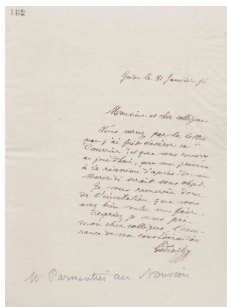 Monsieur et cher collègue
Vous verrez par la lettre
que j'ai fait insérer ce
Courrier et que vous
à la réunion d'après-demain
Mardi serait sans objet.
Je vous remercie donc
de l'invitation que vous
avez bien voulu me faire.
je vous prie,
mon cher collègue, l'assu-
rance de ma considération
Mr Parmentier au Nouvion